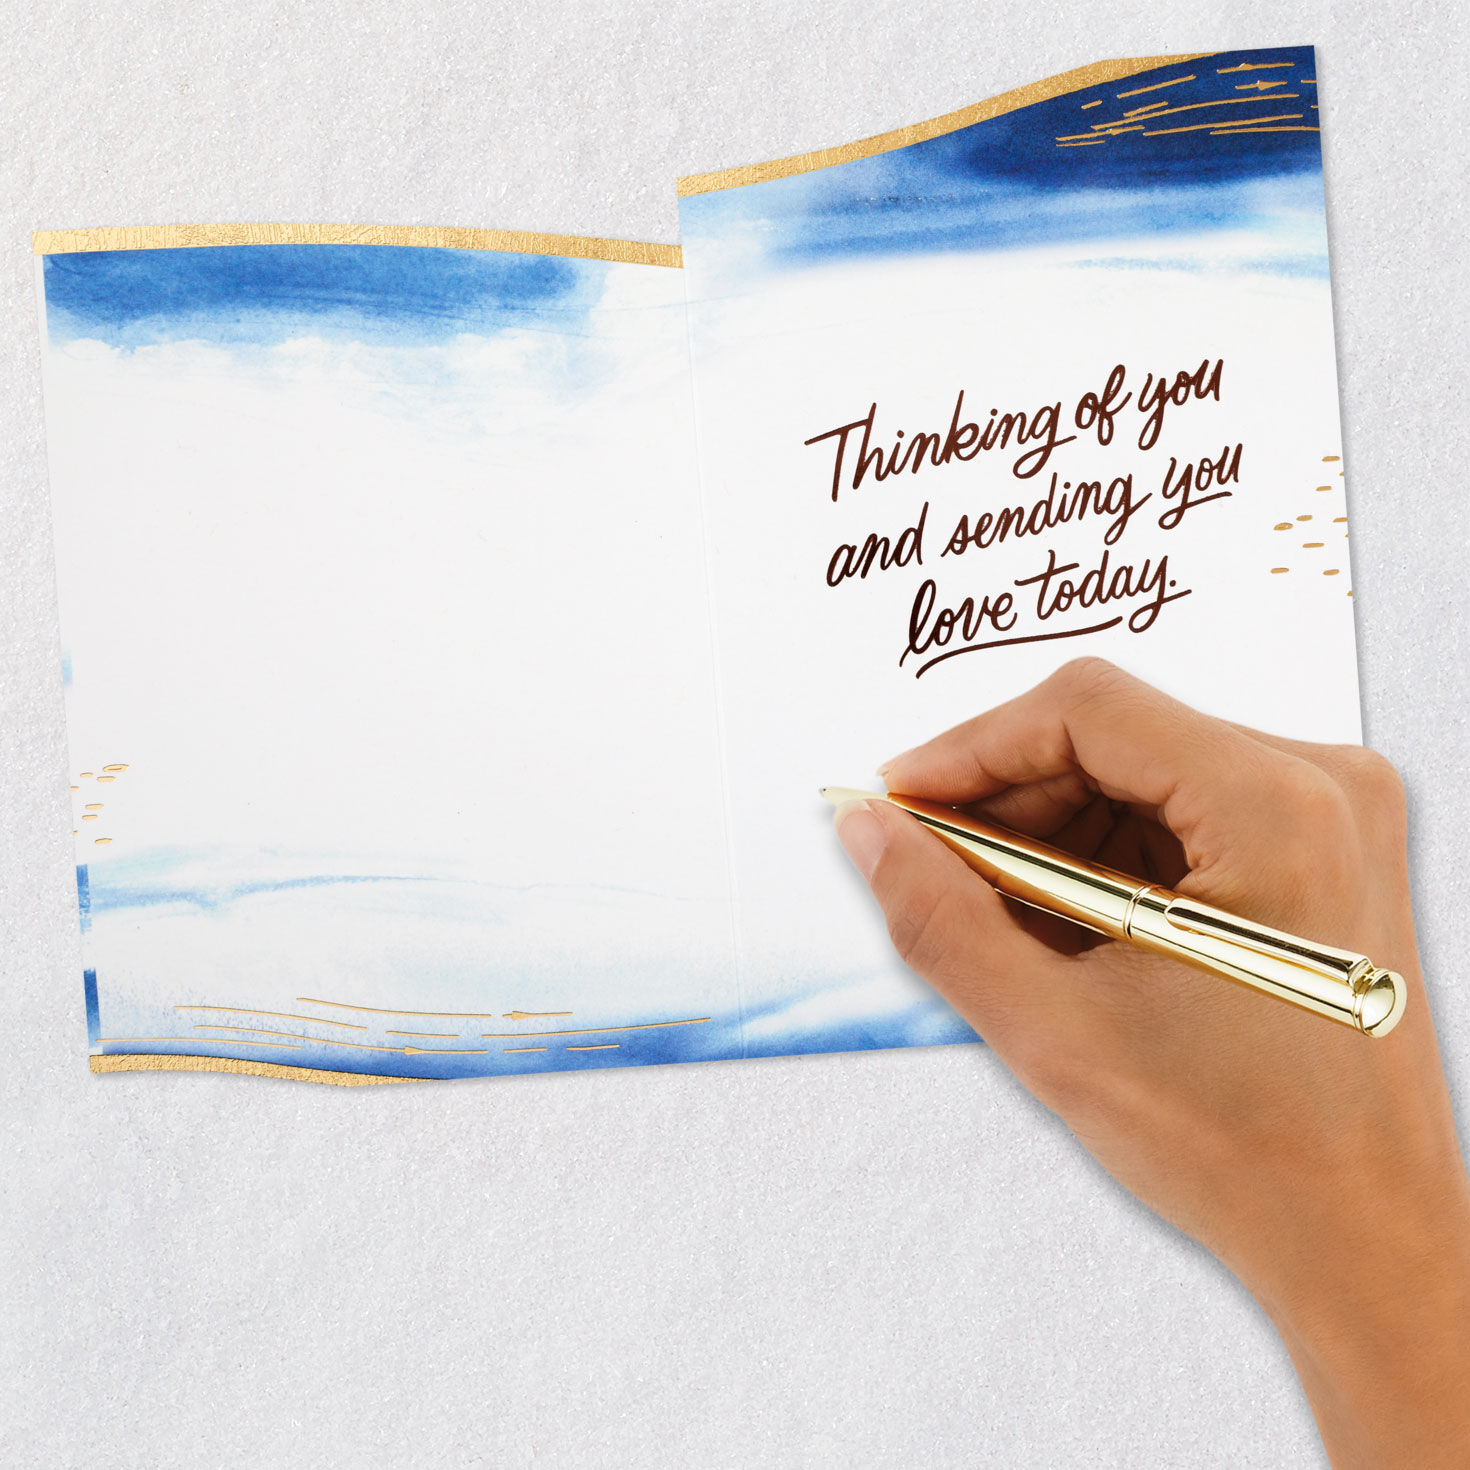 Thinking of you
and sending you
love today.